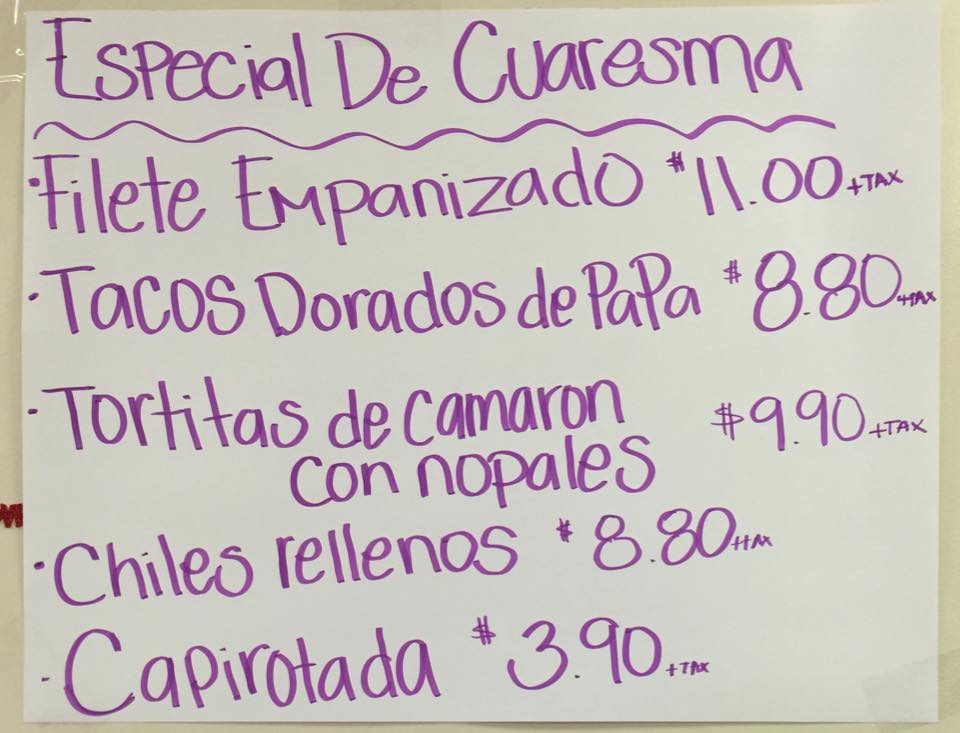 Especial De Cuaresma
·Filete Empanizado $11.00 +TAX
·Tacos Dorados de PaPa $8.80 +TAX
·Tortitas de camaron $9.90 +TAX
con nopales
·Chiles rellenos $8.80 +TAX
·Capirotada $3.90 +TAX